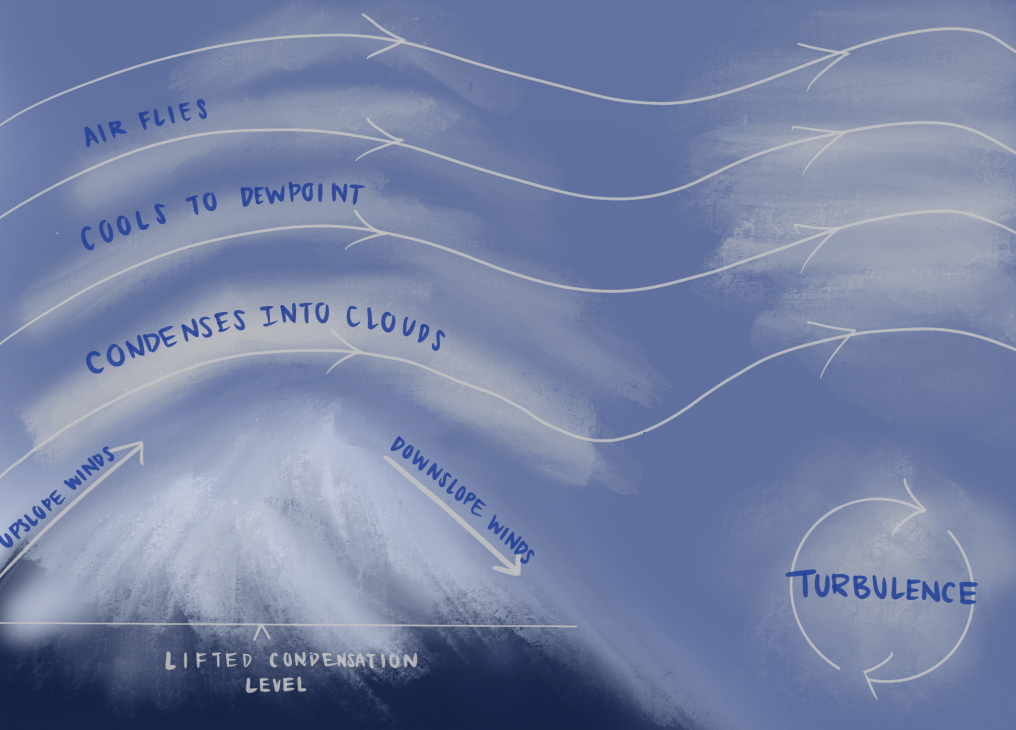 AIR FLIES
COOLS TO DEWPOINT
CONDENSES INTO CLOUDS
UPSLOPE WINDS
DOWNSLOPE WINDS
TURBULENCE
LIFTED CONDENSATION
LEVEL